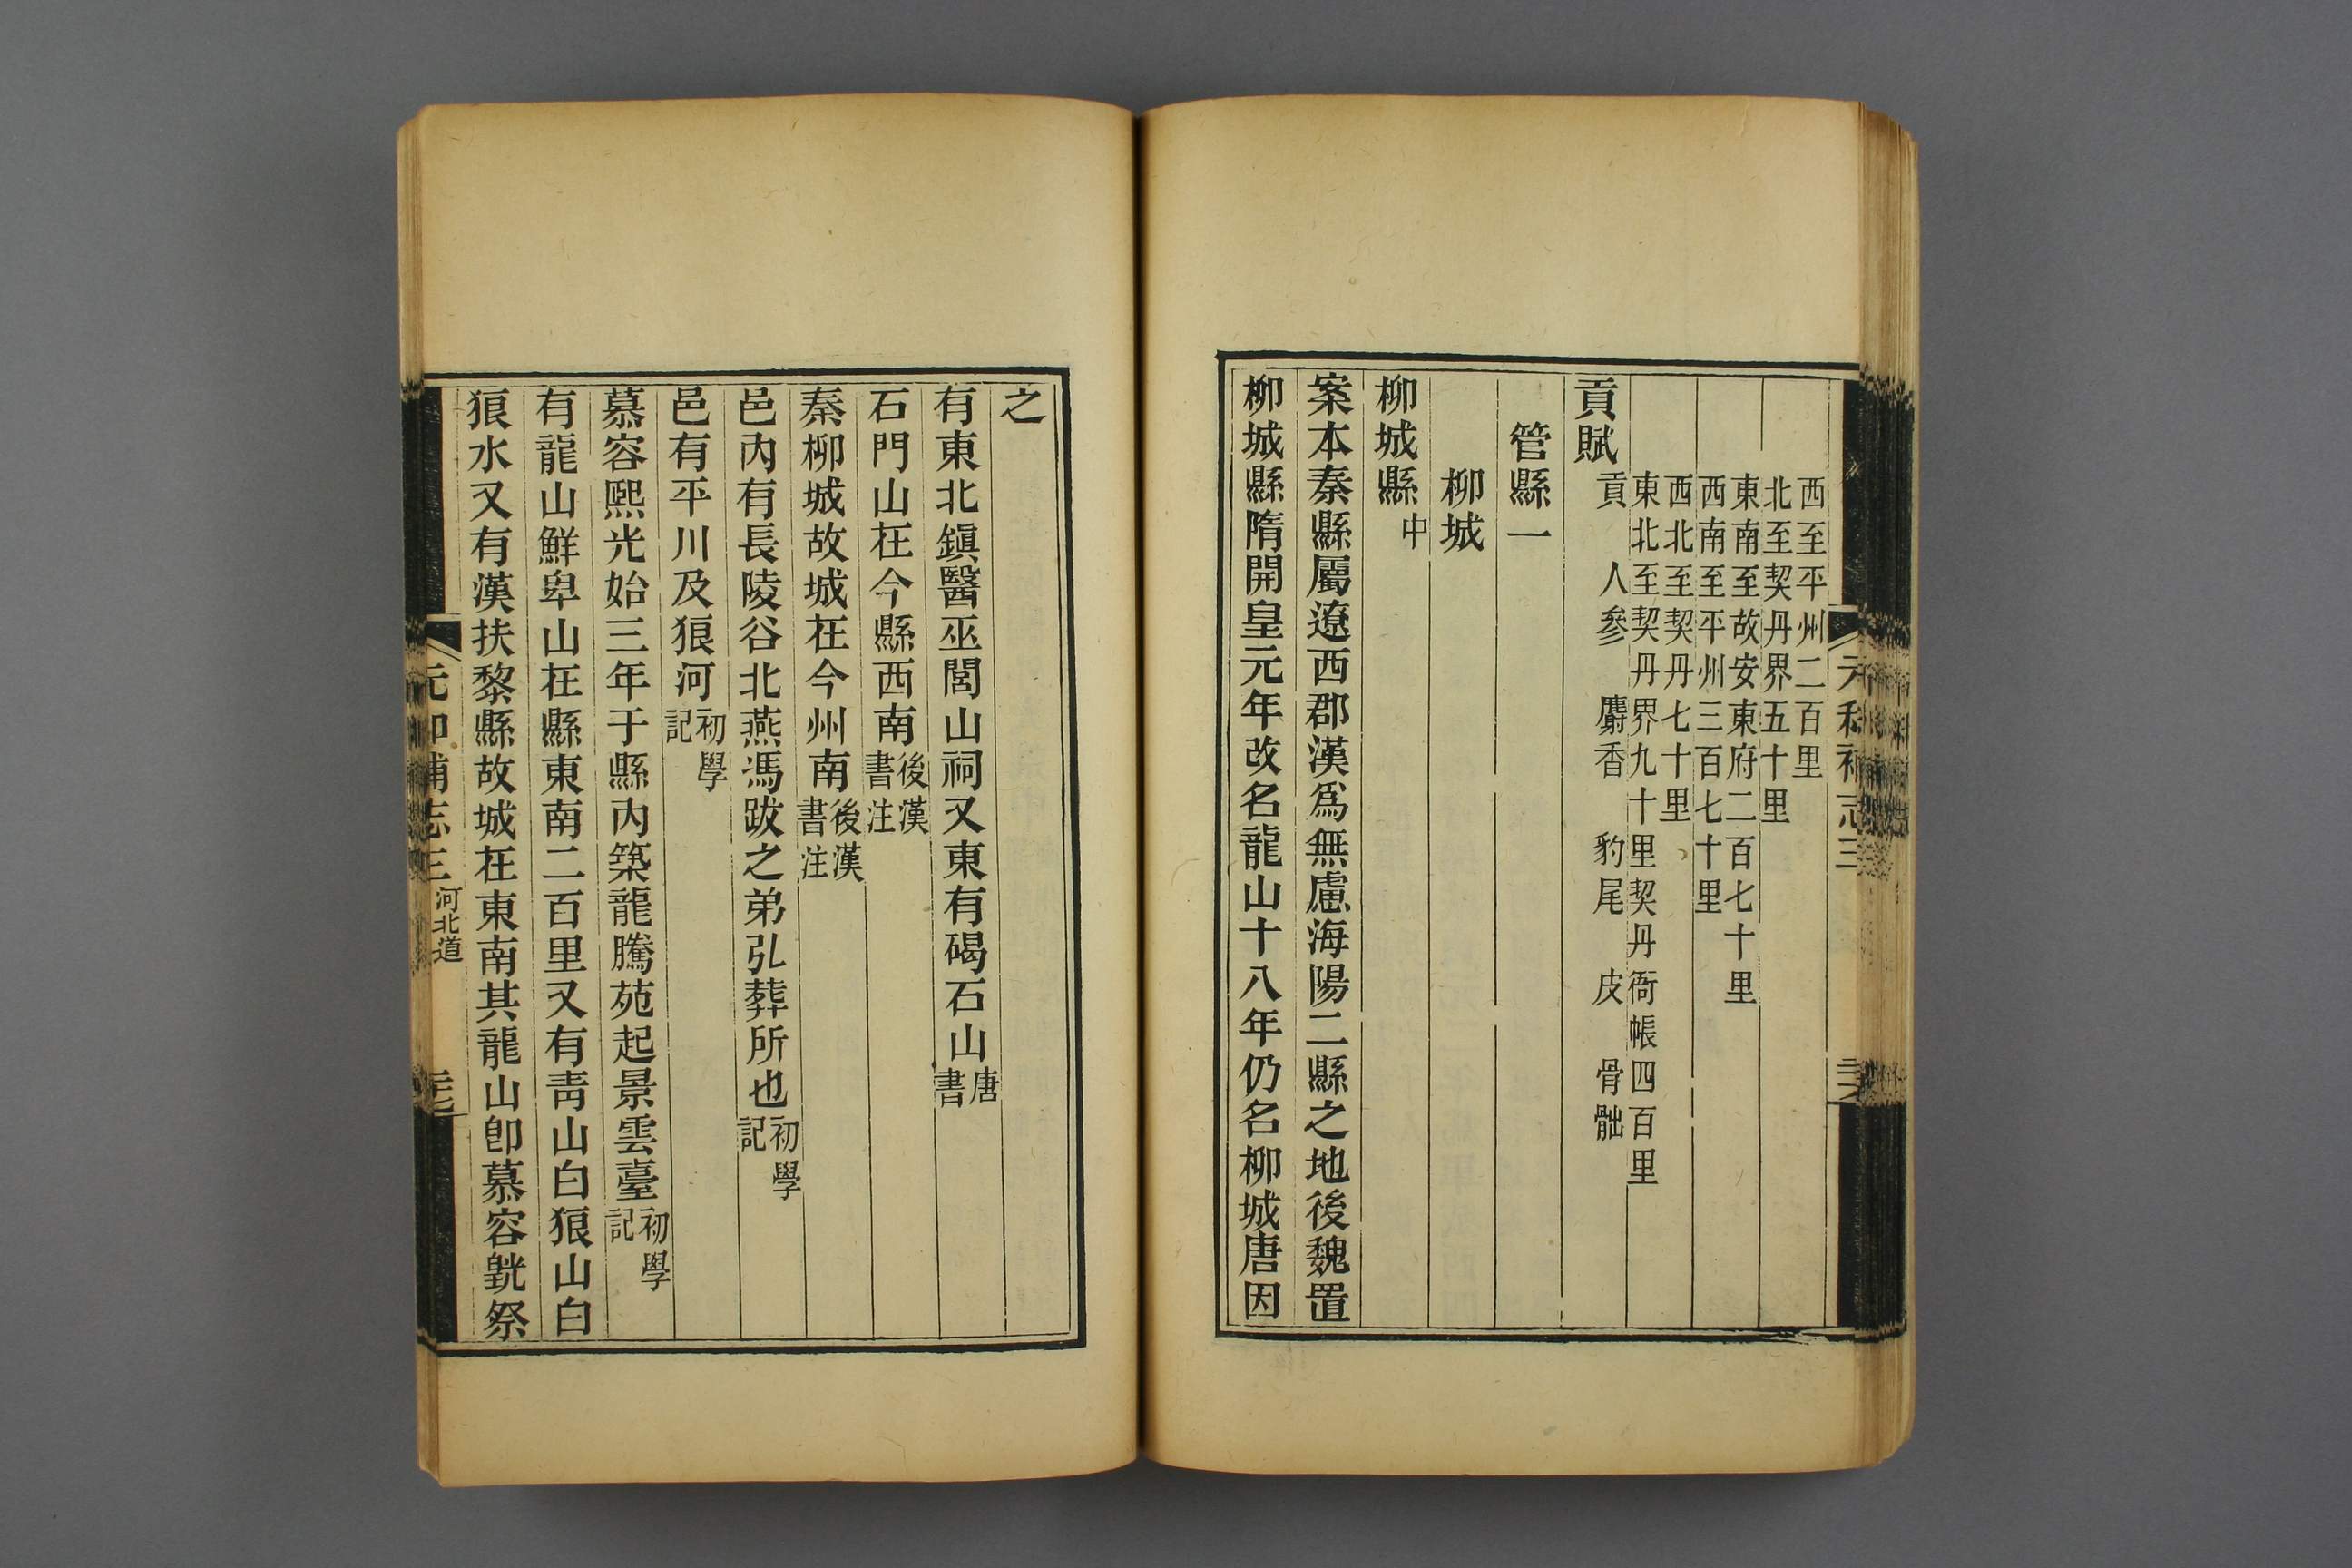 西至平州二百里
北至契丹界五十里
東南至故安東府二百七十里
西南至平州三百七十里
西北至契丹七十里
東北至契丹界九十里契丹衙帳四百里
貢賦 貢 人參 麝香 豹尾 皮 骨䯐
管縣一
柳城
柳城縣中
案本秦縣屬遼西郡漢爲無慮海陽二縣之地後魏置
柳城縣隋開皇元年改名龍山十八年仍名柳城唐因
之
有東北鎮醫巫閭山祠又東有碣石山唐書
石門山在今縣西南後漢書注
秦柳城故城在今州南後漢書注
邑內有長陵谷北燕馮跋之弟弘葬所也初學記
邑有平川及狼河初學記
慕容熙光始三年于縣內築龍騰苑起景雲臺初學記
有龍山鮮卑山在縣東南二百里又有青山白狼山白
狼水又有漢扶黎縣故城在東南其龍山卽慕容皝祭
元和補志三 河北道